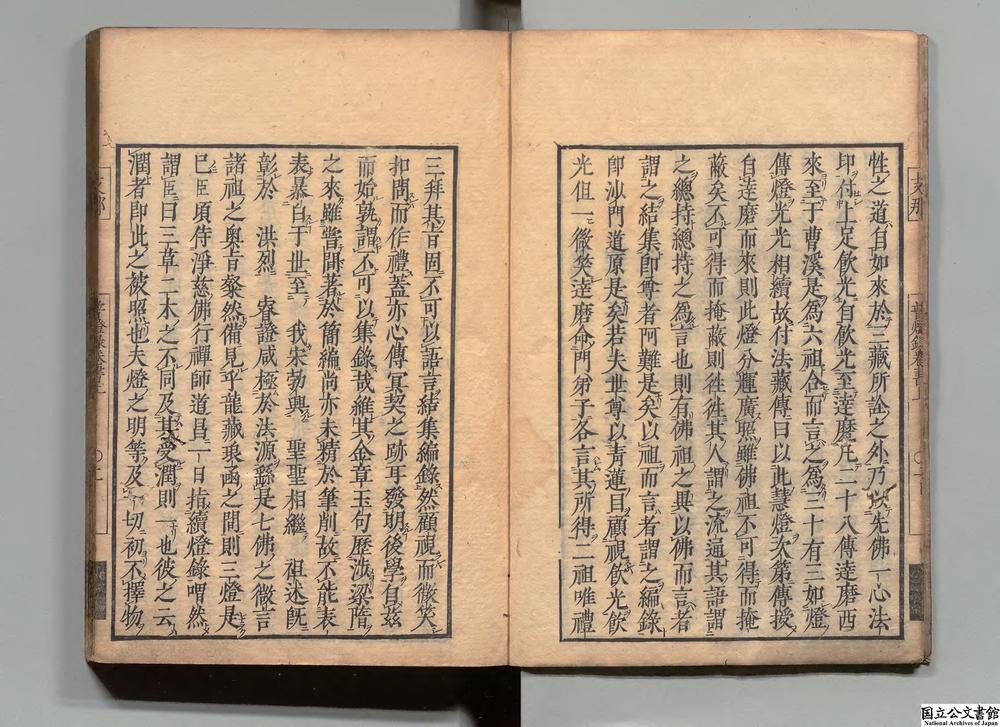 性之道自如來於三藏所詮之外乃以先佛一心法
印付上足飲光自飲光至達磨凡二十八傳達磨西
來至于曹溪是為六祖合而言之為三十有三如燈
傳燈光光相續故付法藏傳曰以此慧燈次第傳授
自達磨而來則此燈分輝廣照雖佛祖不可得而掩
蔽矣不可得而掩蔽則徃徃其人謂之流逼其語謂
之總持總持之為言也則有佛祖之異以佛而言者
謂之結集即尊者阿難是矣以祖而言者謂之編錄
即沙門道原是矣若夫世尊以青蓮目顧視飲光飲
光但一微笑達磨命門弟子各言其所得二祖唯禮
三拜其旨固不可以語言結集編錄然顧視而微笑
扣問而作禮蓋亦心傳冥契之跡耳發明後學自茲
而始孰謂不可以集錄哉維其金章玉句歷涉梁隋
之來雖嘗間著於簡編尚亦未精於筆削故不能表
表暴白于世至 我宋勃興 聖聖相繼 祖述既
彰於 洪烈 睿證咸極於法源繇是七佛之微言
諸祖之奧旨粲然備見乎龍藏琅函之間則三燈是
已臣頃侍淨慈佛行禪師道昌一日指續燈錄喟然
謂臣曰三草二木之不同及其受潤則一也彼之云
潤者即此之被照也夫燈之明等及一切初不擇物
国立公文書館
National Archives of Japan